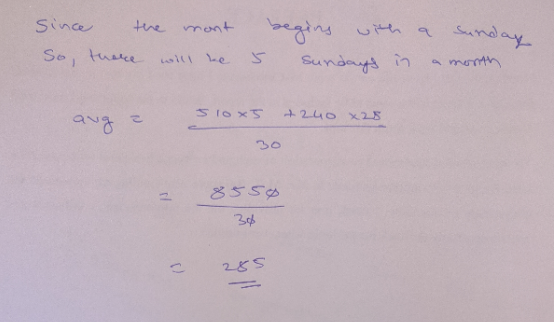 Since the mont begins with a Sunday
So, there will be 5 Sundays in a month
avg = 510×5 +240 ×28
30
= 8550
30
= 285